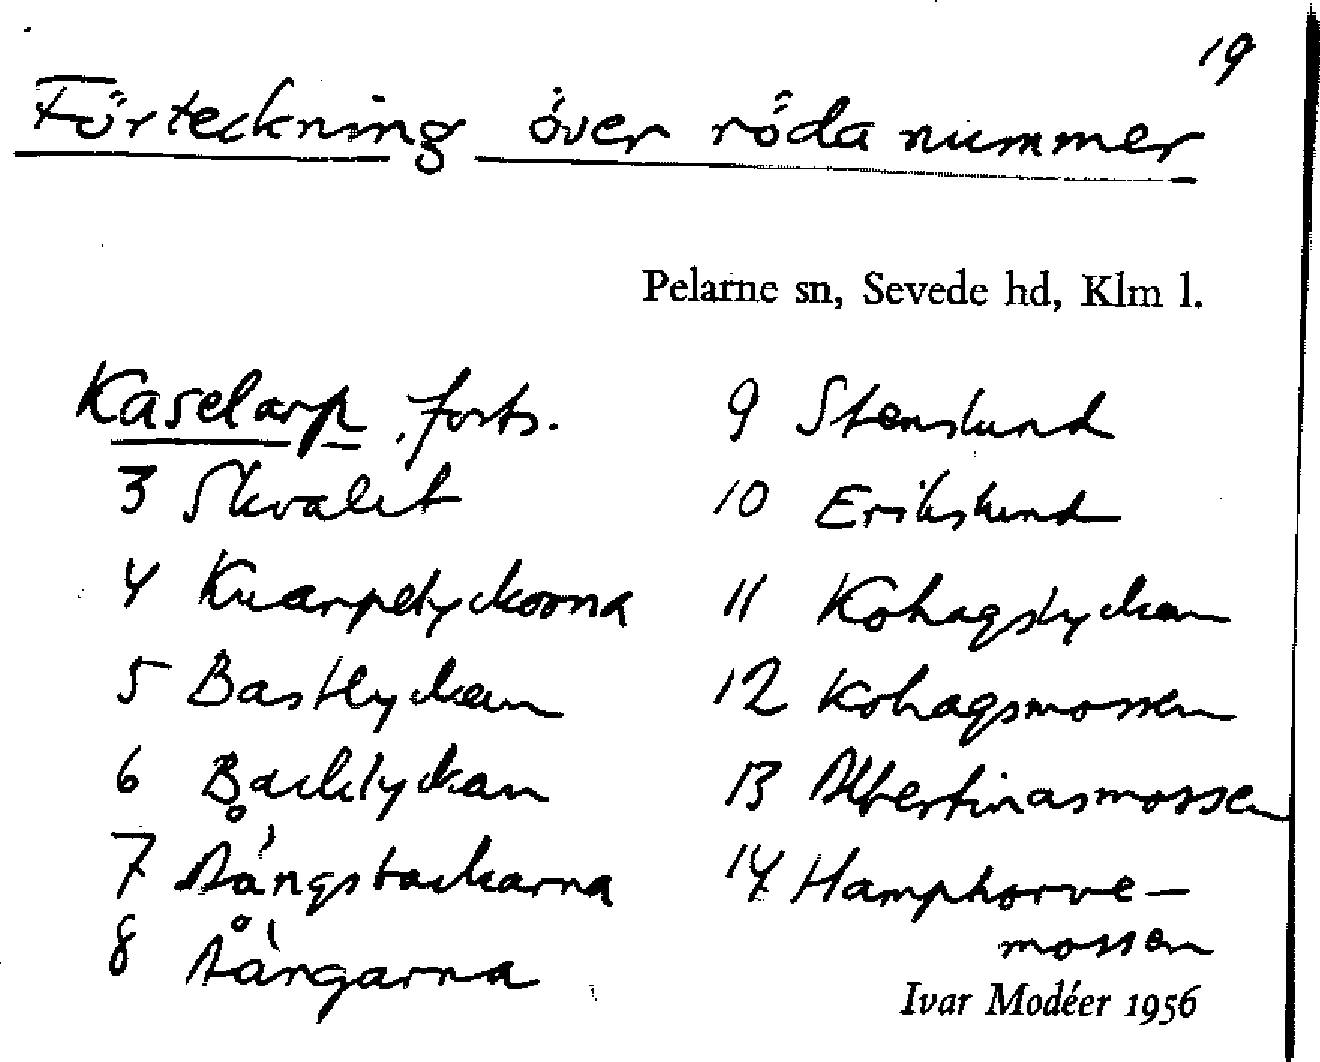 19
Förteckning över röda nummer
Pelarne sn, Sevede hd, Klm l.
Kaselarp, forts.
3 Skvalet
4 Kvarpelyckorna
5 Bastlyckan
6 Backlyckan
7 Aångsbackarna
8 Aångarna
9 Stenslund
10 Erikslund
11 Kohagslyckan
12 Kohagsmossen
13 Albertinasmossen
14 Hamphorve-
mossen
Ivar Modéer 1956